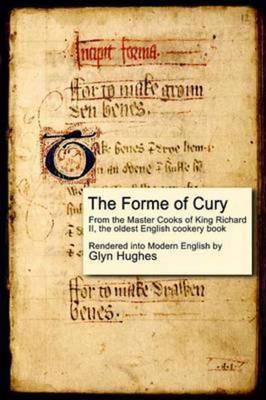 12
Incipit forma.
ffor to make groun
den benes.
Take benes & drye hem i
in an ovene & 
The Forme of Cury
From the Master Cooks of King Richard
II, the oldest English cookery book
Rendered into Modern English by
Glyn Hughes
ffor to make drawen
benes.